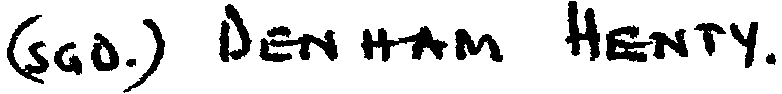 (SGD.) DENHAM HENTY.